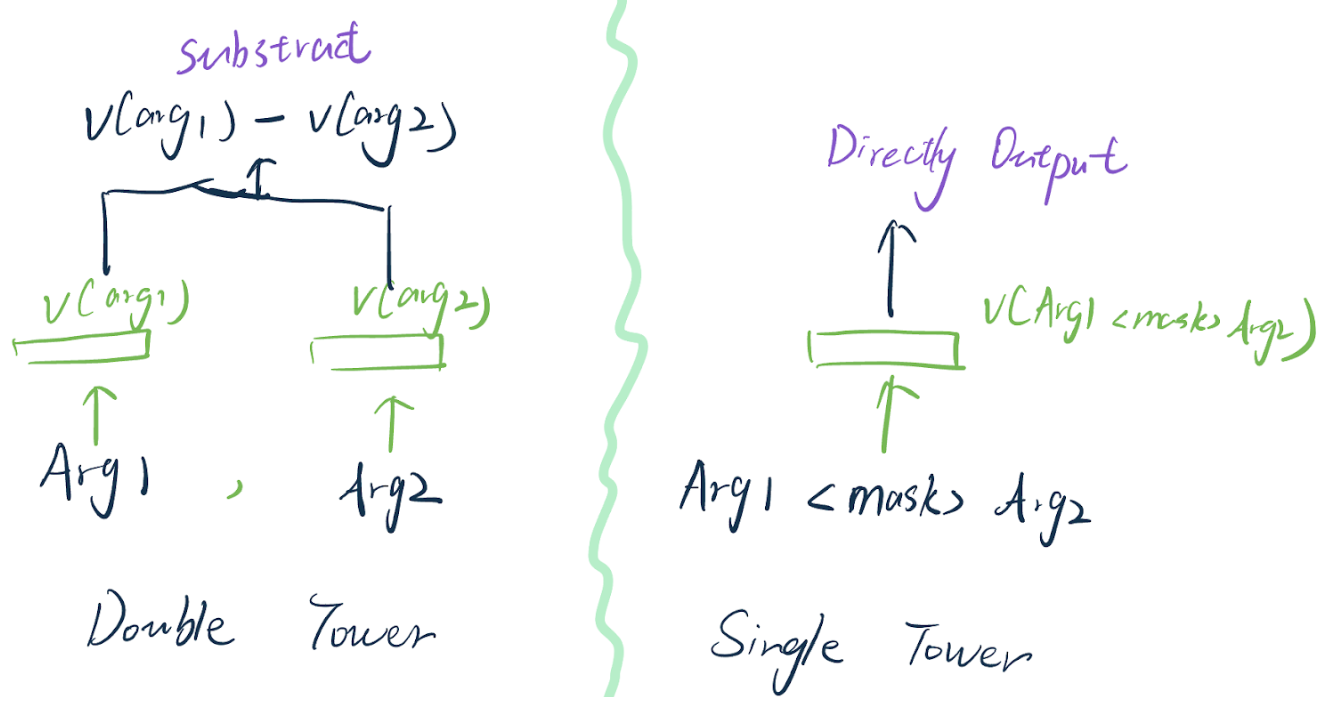 Substract
V(arg1) - V(arg2)
V(arg1) V(arg2)
Arg1 , Arg2
Double Tower
Directly Output
V(Arg1 <mask> Arg2)
Arg1 <mask> Arg2
Single Tower